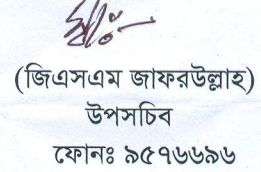 স্বাঃ-
(জিএসএম জাফরউল্লাহ)
উপসচিব
ফোনঃ ৯৫৭৬৬৯৬